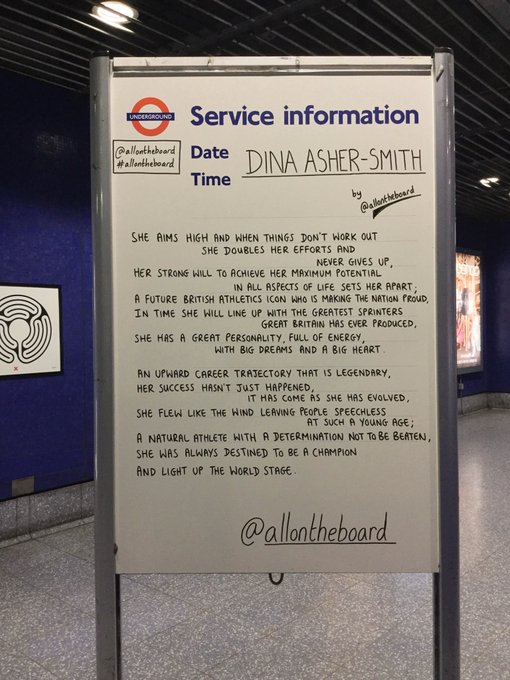 UNDERGROUND
Service information
@allontheboard
#allontheboard
Date
Time
DINA ASHER-SMITH
by @allontheboard
SHE AIMS HIGH AND WHEN THINGS DON'T WORK OUT
SHE DOUBLES HER EFFORTS AND
NEVER GIVES UP,
HER STRONG WILL TO ACHIEVE HER MAXIMUM POTENTIAL
IN ALL ASPECTS OF LIFE SETS HER APART;
A FUTURE BRITISH ATHLETICS ICON WHO IS MAKING THE NATION PROUD,
IN TIME SHE WILL LINE UP WITH THE GREATEST SPRINTERS
GREAT BRITAIN HAS EVER PRODUCED,
SHE HAS A GREAT PERSONALITY, FULL OF ENERGY,
WITH BIG DREAMS AND A BIG HEART.
AN UPWARD CAREER TRAJECTORY THAT IS LEGENDARY,
HER SUCCESS HASN'T JUST HAPPENED,
IT HAS COME AS SHE HAS EVOLVED,
SHE FLEW LIKE THE WIND LEAVING PEOPLE SPEECHLESS
AT SUCH A YOUNG AGE;
A NATURAL ATHLETE WITH A DETERMINATION NOT TO BE BEATEN,
SHE WAS ALWAYS DESTINED TO BE A CHAMPION
AND LIGHT UP THE WORLD STAGE.
@allontheboard